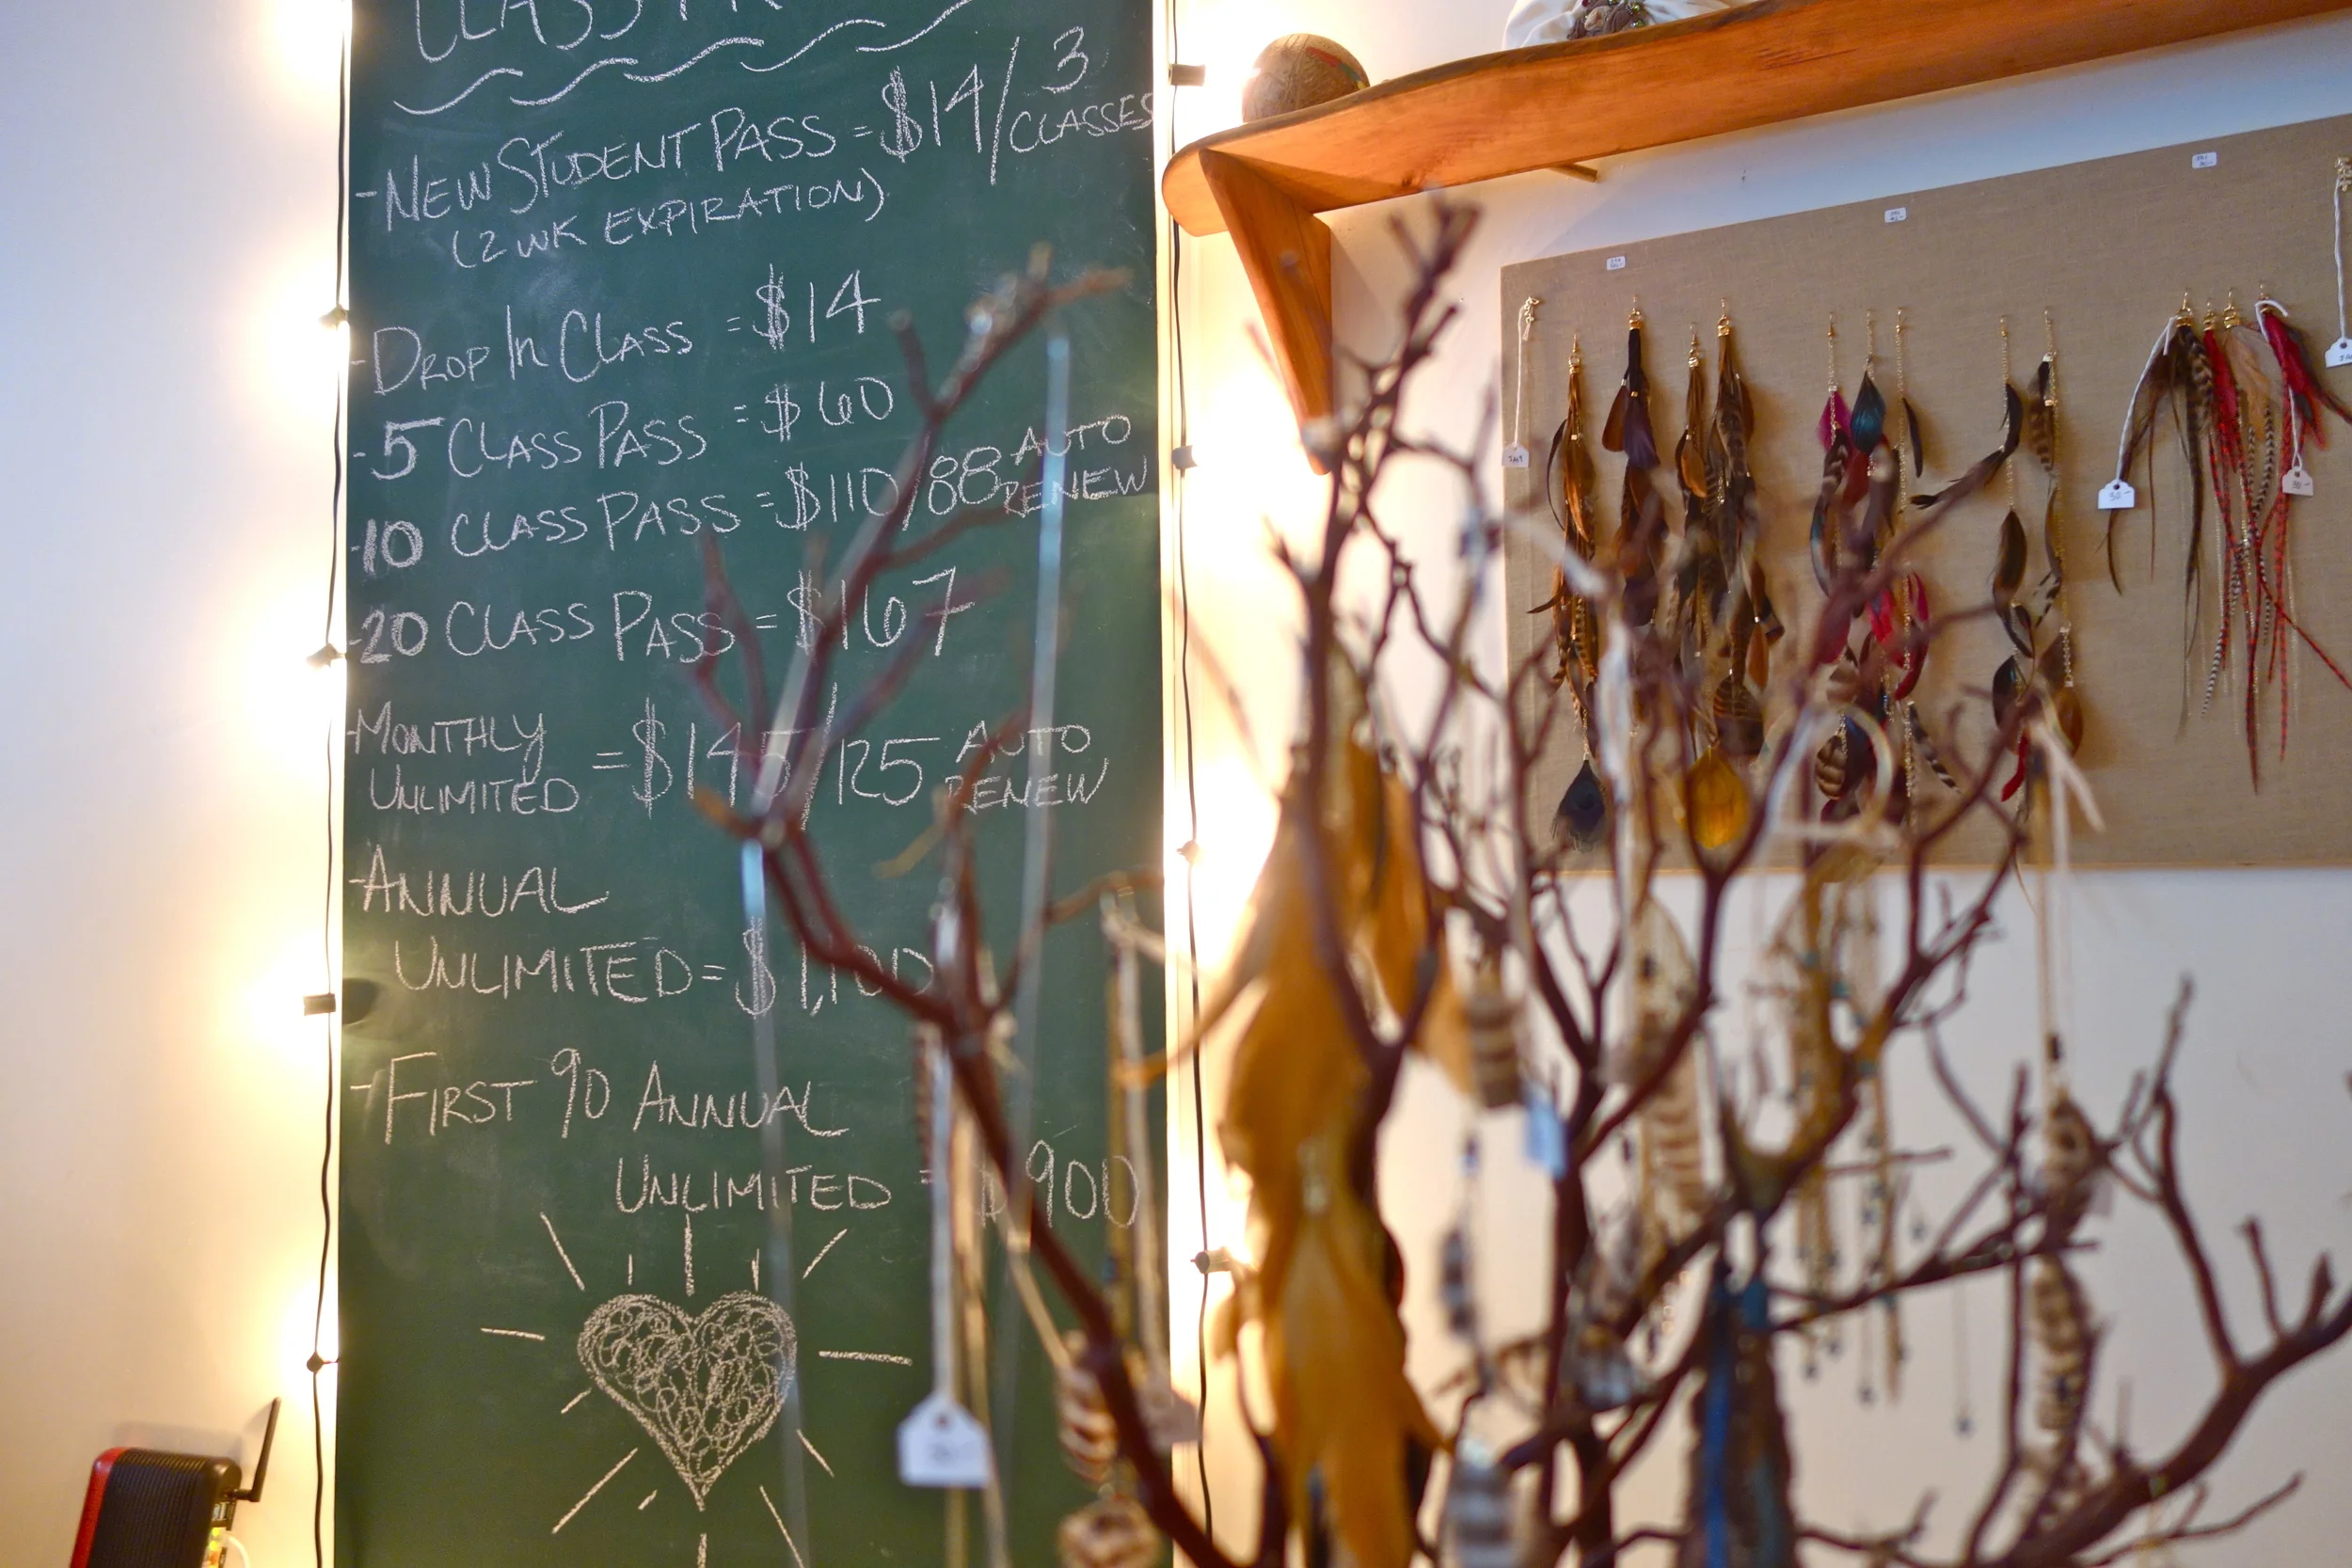 CLASS
-NEW STUDENT PASS = $14/3 CLASSES
(2 WK EXPIRATION)
-DROP IN CLASS = $14
-5 CLASS PASS = $60
-10 CLASS PASS = $110/88 AUTO RENEW
-20 CLASS PASS = $167
-MONTHLY UNLIMITED = $145/125 AUTO RENEW
-ANNUAL
UNLIMITED = $1,100
-FIRST 90 ANNUAL
UNLIMITED = $900